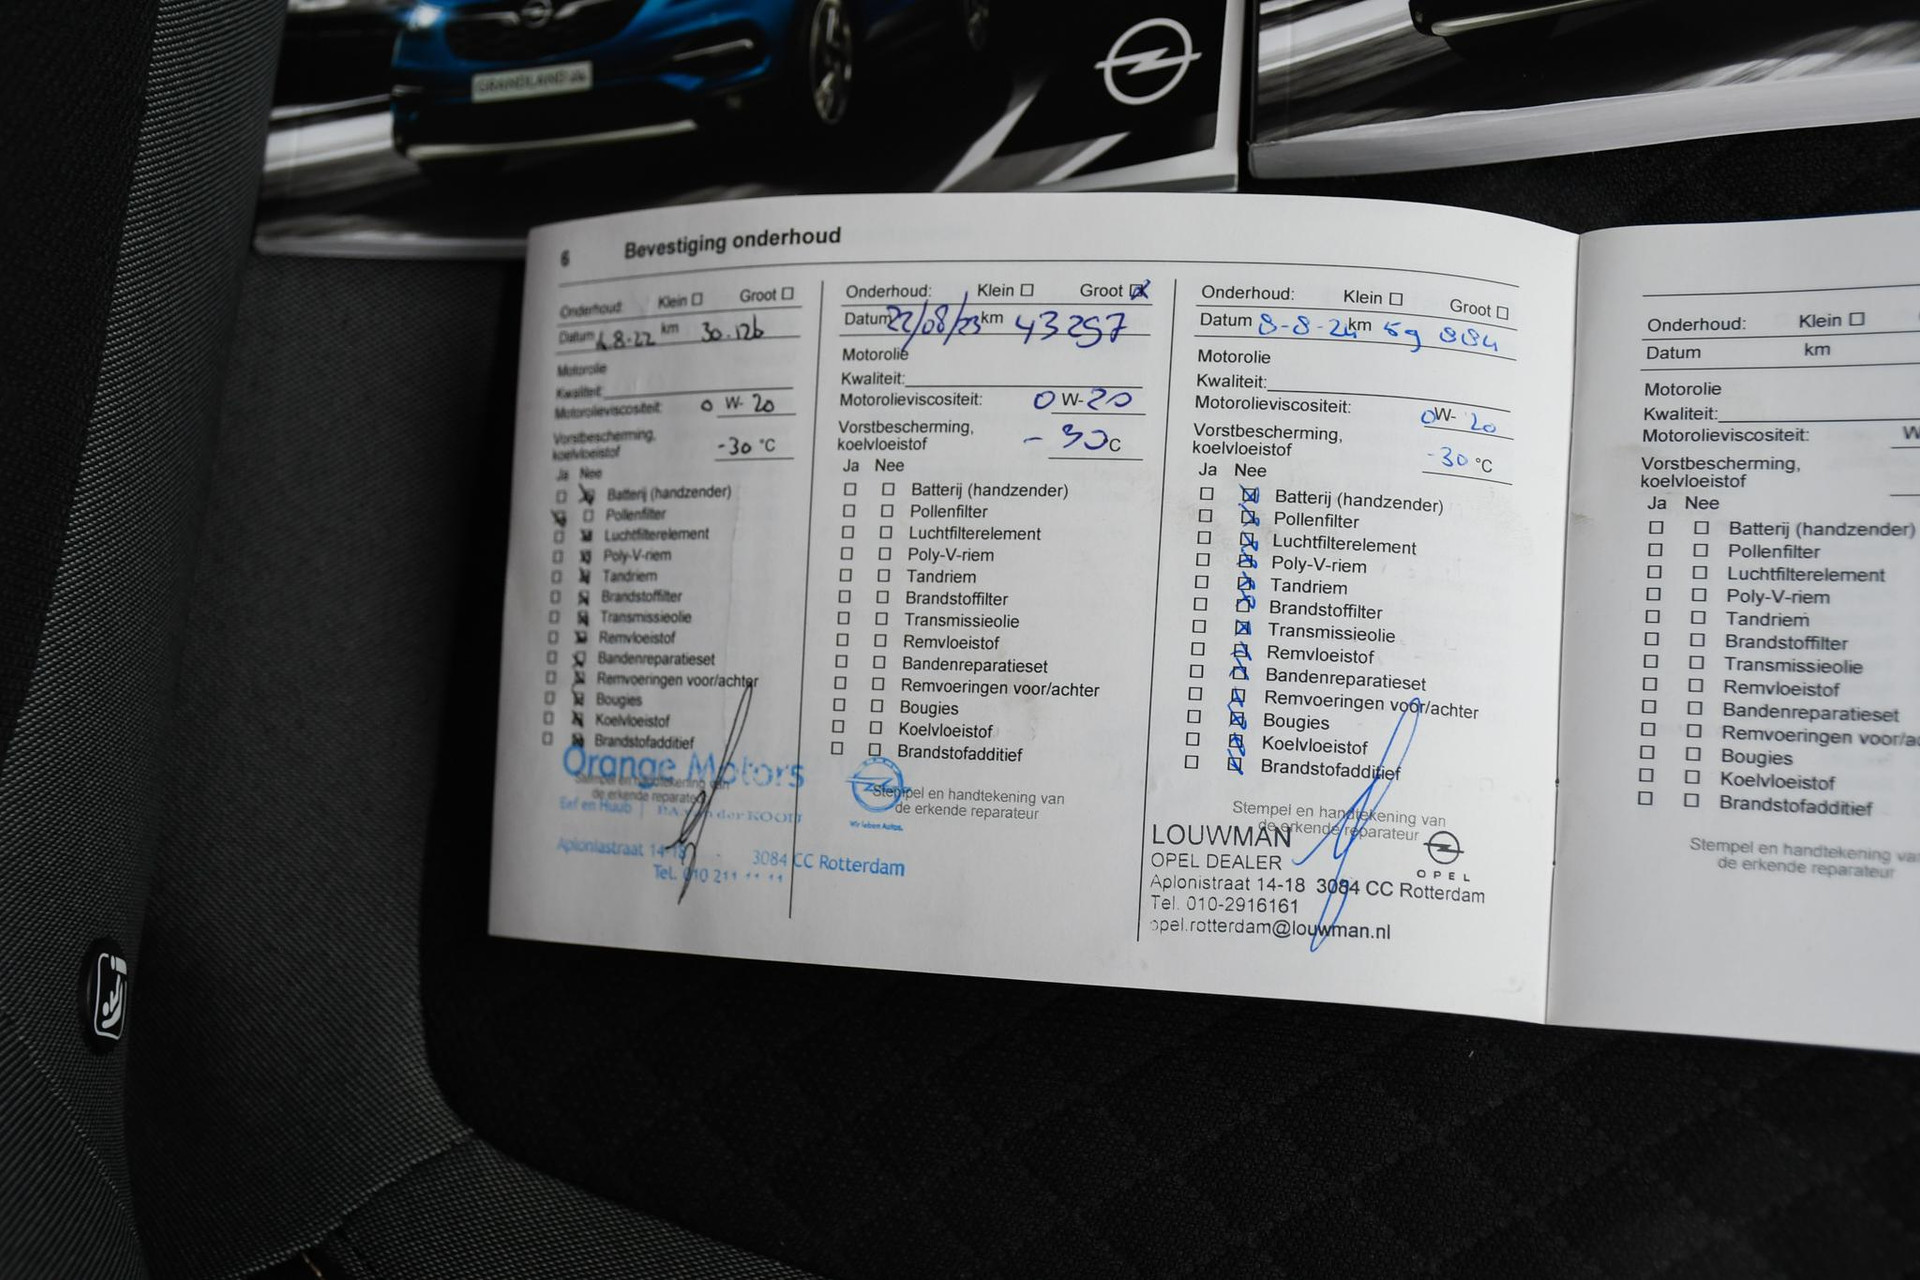 GRANDLAND
6 Bevestiging onderhoud
Onderhoud: Klein Groot
Datum 8-22 km 30.126
Motorolie
Kwaliteit:
Motorolieviscositeit: 0 W- 20
Vorstbescherming,
koelvloeistof -30 °C
Ja Nee
Batterij (handzender)
Pollenfilter
Luchtfilterelement
Poly-V-riem
Tandriem
Brandstoffilter
Transmissieolie
Remvloeistof
Bandenreparatieset
Remvoeringen voor/achter
Bougies
Koelvloeistof
Brandstofadditief
Orange Motors
Stempel en handtekening van
de erkende reparateur
Aploniastraat 14-18 3084 CC Rotterdam
Tel. 010 211
Onderhoud: Klein Groot
Datum 22/08/23 km 43257
Motorolie
Kwaliteit:
Motorolieviscositeit: 0 W- 20
Vorstbescherming,
koelvloeistof - 30 C
Ja Nee
Batterij (handzender)
Pollenfilter
Luchtfilterelement
Poly-V-riem
Tandriem
Brandstoffilter
Transmissieolie
Remvloeistof
Bandenreparatieset
Remvoeringen voor/achter
Bougies
Koelvloeistof
Brandstofadditief
Stempel en handtekening van
de erkende reparateur
Wir leben Autos.
Onderhoud: Klein Groot
Datum 8-8-24 km 59 884
Motorolie
Kwaliteit:
Motorolieviscositeit: 0W- 20
Vorstbescherming,
koelvloeistof -30 °C
Ja Nee
Batterij (handzender)
Pollenfilter
Luchtfilterelement
Poly-V-riem
Tandriem
Brandstoffilter
Transmissieolie
Remvloeistof
Bandenreparatieset
Remvoeringen voor/achter
Bougies
Koelvloeistof
Brandstofadditief
Stempel en handtekening van
de erkende reparateur
LOUWMAN
OPEL DEALER
OPEL
Aplonistraat 14-18 3084 CC Rotterdam
Tel. 010-2916161
opel.rotterdam@louwman.nl
Onderhoud: Klein
Datum km
Motorolie
Kwaliteit:
Motorolieviscositeit: W
Vorstbescherming,
koelvloeistof
Ja Nee
Batterij (handzender)
Pollenfilter
Luchtfilterelement
Poly-V-riem
Tandriem
Brandstoffilter
Transmissieolie
Remvloeistof
Bandenreparatieset
Remvoeringen voor/a
Bougies
Koelvloeistof
Brandstofadditief
Stempel en handtekening va
de erkende reparateur